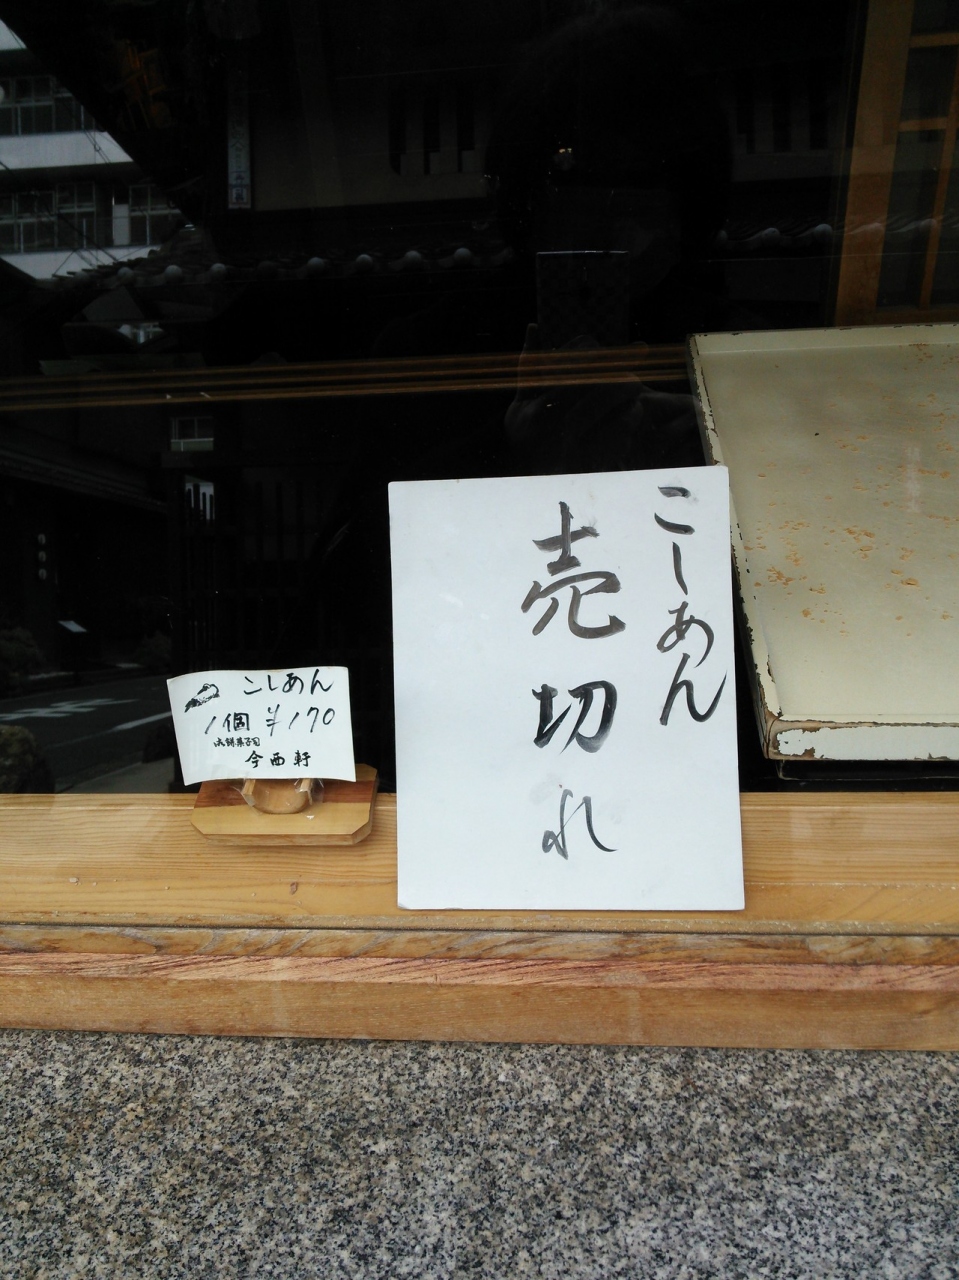 こしあん
売切れ
こしあん
1個 ¥170
今西軒